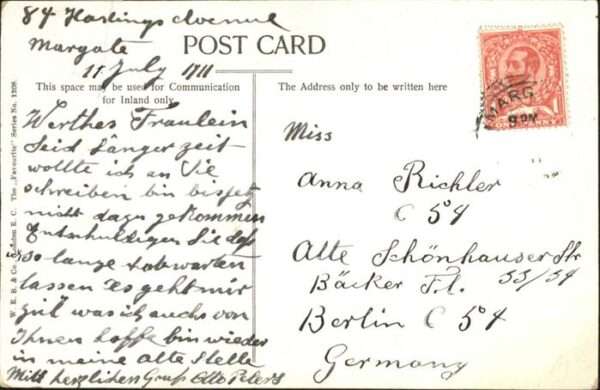 84 Hastings Avenue
Margate
11 July 1911
POST CARD
This space may be used for Communication
for Inland only.
The Address only to be written here
Werthes Fraulein
Seid länger zeit
wollte ich an Sie
schreiben bin bis jetz
nicht dazu gekommen
Entschuldigen Sie daß
so lange habwarten
lassen Es geht mir
gut was ich auch von
Ihnen hoffe bin wieder
in meine alte Stelle
Mitt herzlichen Gruß Otto Peters
Miss
Anna Richler
C 54
Alte Schönhauser Str
33/34
Bäcker
Berlin C 54
Germany
MARG
9 PM
W. E. B. & Co. London E. C. The "Favourite" Series No. 1208.